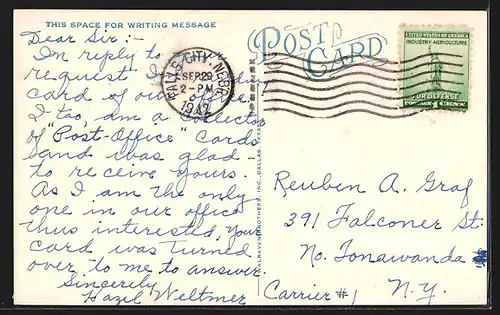 THIS SPACE FOR WRITING MESSAGE
Dear Sir:-
In reply to
request I
card of our office.
I too, am a collector
of "Post-Office" Cards
and was glad
to receive yours.
As I am the only
one in our office
thus interested, your
card was turned
over to me to answer.
Sincerely
Hazel Weltmer
FALLS CITY, NEBR.
SEP 29
2-PM
1942
POST CARD
UNITED STATES OF AMERICA
INDUSTRY-AGRICULTURE
FOR DEFENSE
1 CENT
Reuben A. Graf
391 Falconer St.
No. Tonawanda
Carrier #1 N.Y.